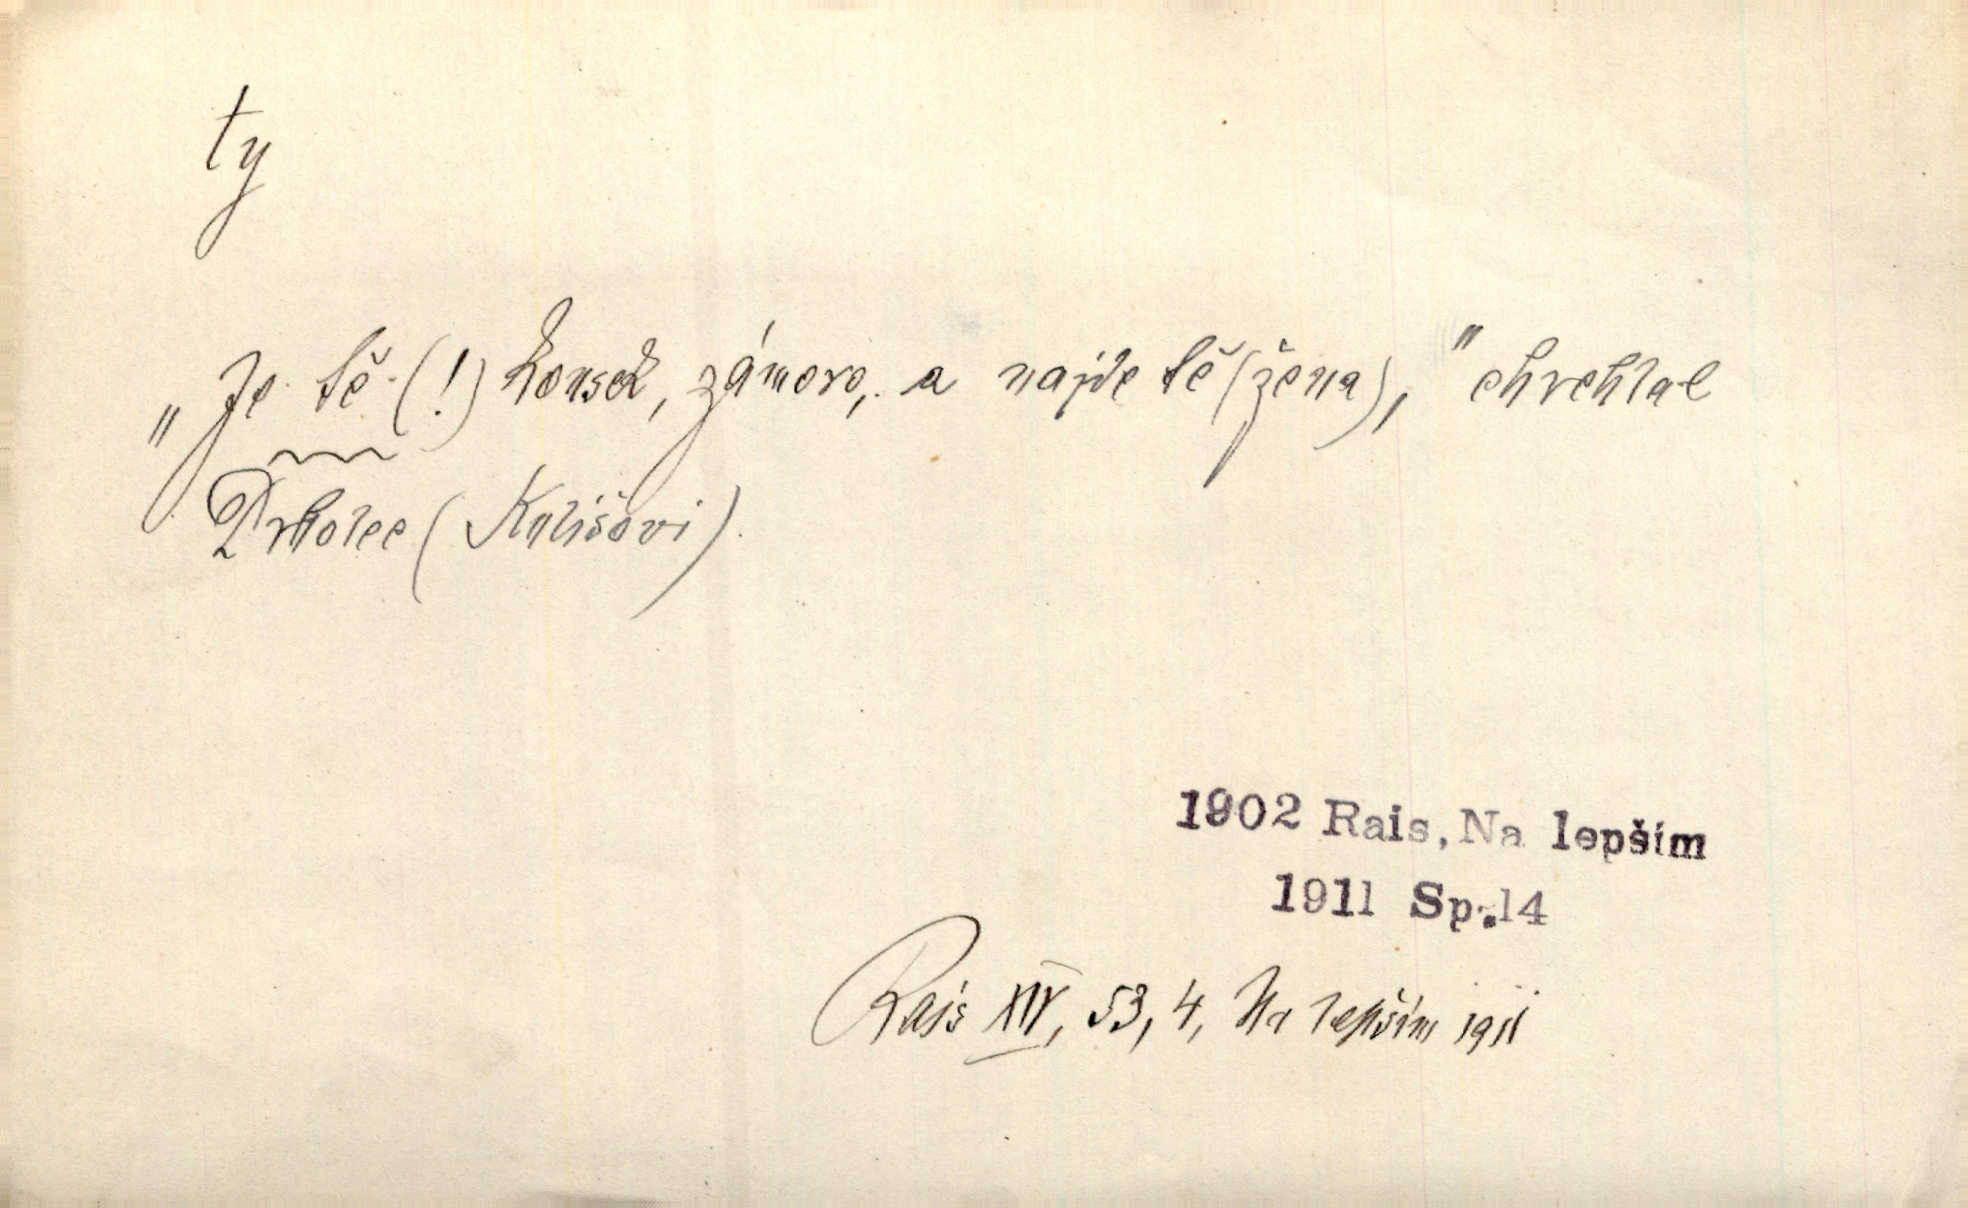 ty
„Je tě (!) kousek, zámoro, a najde tě (žena),“ chrchlal
Drholec (Kulišovi).
1902 Rais, Na lepším
1911 Sp.14
Rais XIV, 53, 4, Na lepším 1911